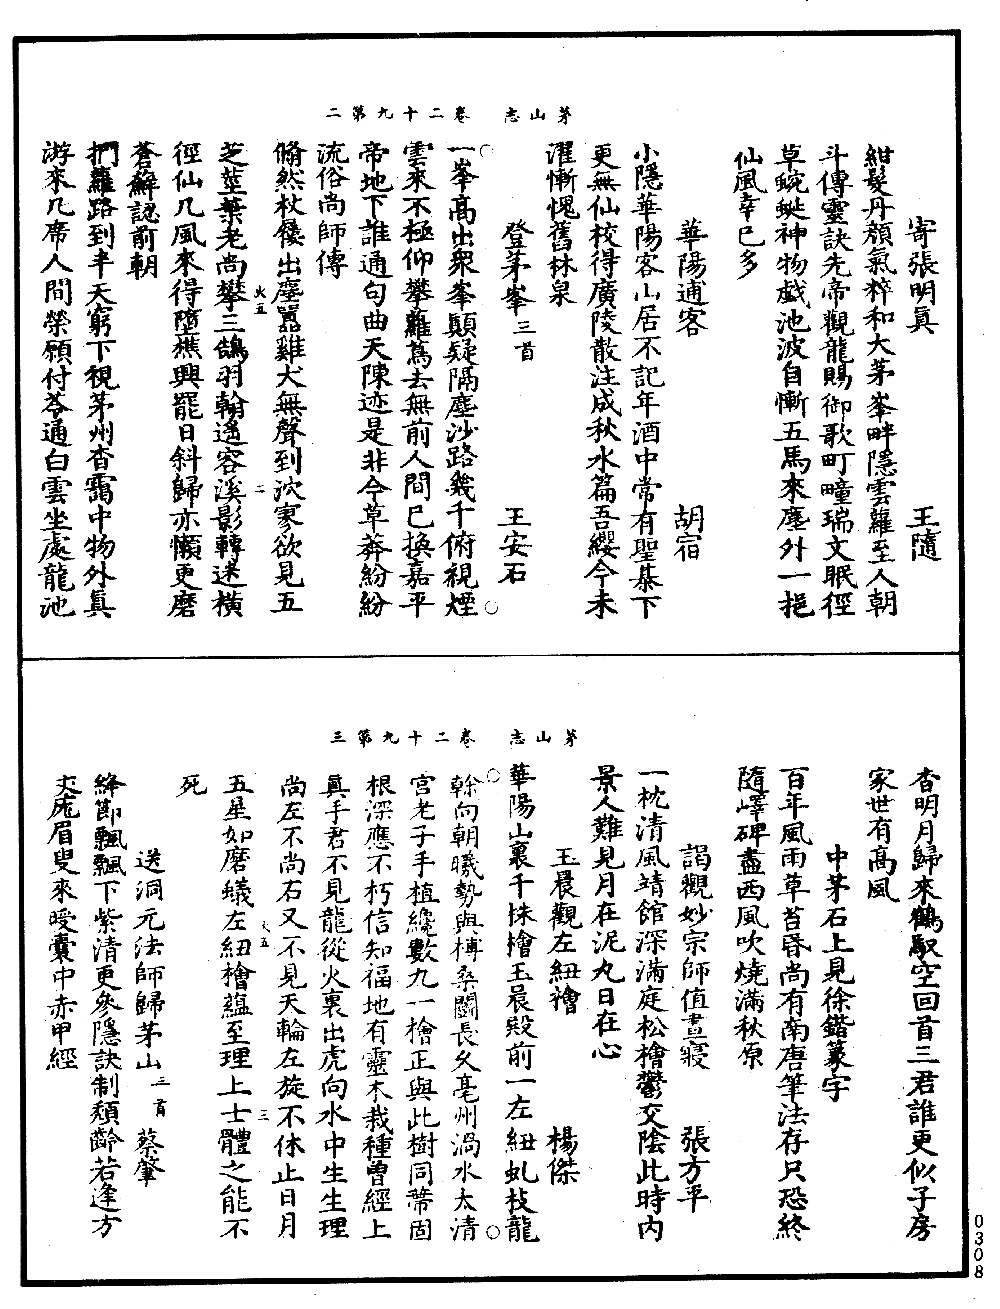 茅山志　卷二十九第二
寄張明眞　王隨
紺髮丹顏氣粹和大茅峯畔隱雲蘿至人朝
斗傳靈訣先帝觀龍賜御歌町疃瑞文眠徑
草蜿蜒神物戲池波自慚五馬來塵外一挹
仙風幸已多
華陽逋客　胡宿
小隱華陽客山居不記年酒中常有聖棊下
更無仙校得廣陵散注成秋水篇吾纓今未
濯慚愧舊林泉
登茅峯三首　王安石
一峯高出衆峯顛疑隔塵沙路幾千俯視煙
雲來不極仰攀蘿蔦去無前人間已換嘉平
帝地下誰通句曲天陳迹是非今草莽紛紛
流俗尚師傳
翛然杖屨出塵囂雞犬無聲到泬寥欲見五
芝莖葉老尚攀三鵠羽翰遙容溪影轉迷橫
徑仙几風來得墮樵興罷日斜歸亦懶更磨
蒼蘚認前朝
捫蘿路到半天窮下視茅州杳靄中物外眞
游來几席人間榮願付苓通白雲坐處龍池
火五　二
茅山志　卷二十九第三
杳明月歸來鶴馭空回首三君誰更似子房
家世有高風
中茅石上見徐鍇篆字
百年風雨草苔昏尚有南唐筆法存只恐終
隨嶧碑盡西風吹燒滿秋原
謁觀妙宗師值晝寢　張方平
一枕清風靖館深滿庭松檜鬱交陰此時內
景人難見月在泥丸日在心
玉晨觀左紐檜　楊傑
華陽山裏千株檜玉晨殿前一左紐虬枝龍
榦向朝曦勢與榑桑鬬長久亳州渦水太清
宮老子手植纔數九一檜正與此樹同蔕固
根深應不朽信知福地有靈木栽種曾經上
眞手君不見龍從火裏出虎向水中生生理
尚左不尚右又不見天輪左旋不休止日月
五星如磨蟻左紐檜蘊至理上士體之能不
死
送洞元法師歸茅山三首　蔡肇
絳節飄飄下紫清更參隱訣制頹齡若逢方
丈厖眉叟來曖囊中赤甲經
火五　三
0308